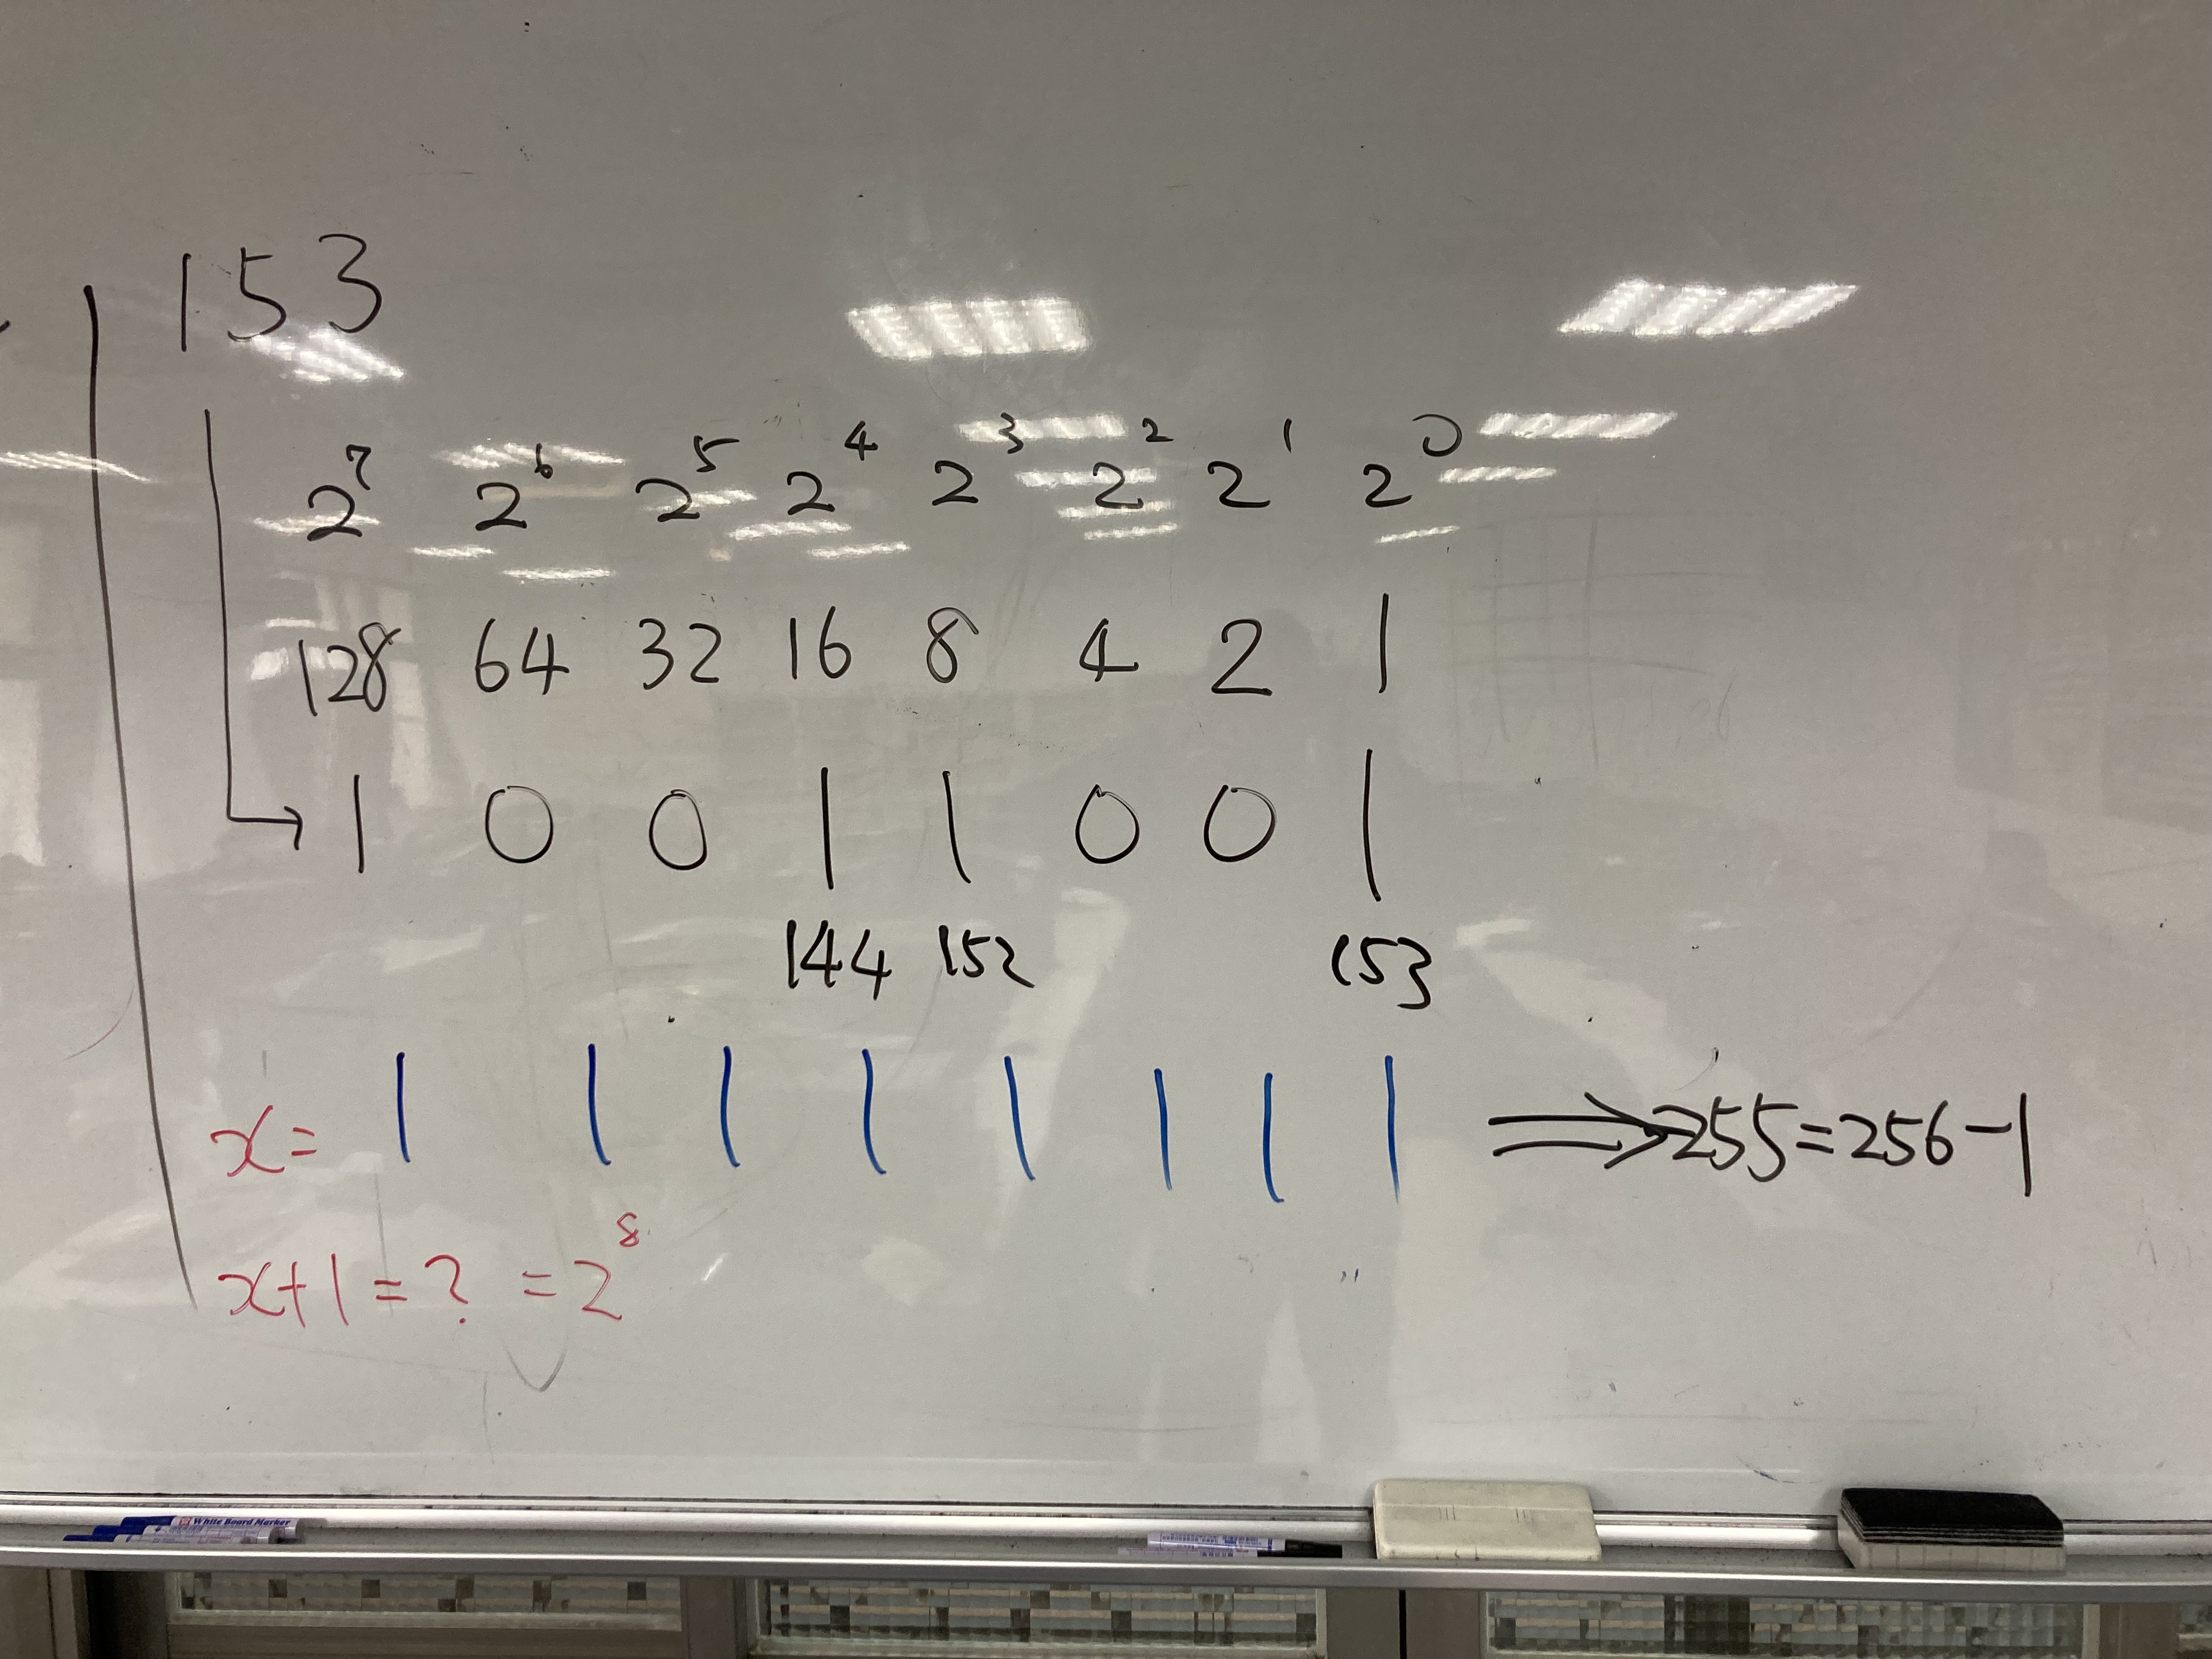 153
2⁷ 2⁶ 2⁵ 2⁴ 2³ 2² 2¹ 2⁰
128 64 32 16 8 4 2 1
1 0 0 1 1 0 0 1
144 152 153
x= 1 1 1 1 1 1 1 1 ⇒ 255=256-1
x+1=? =2⁸
White Board Marker